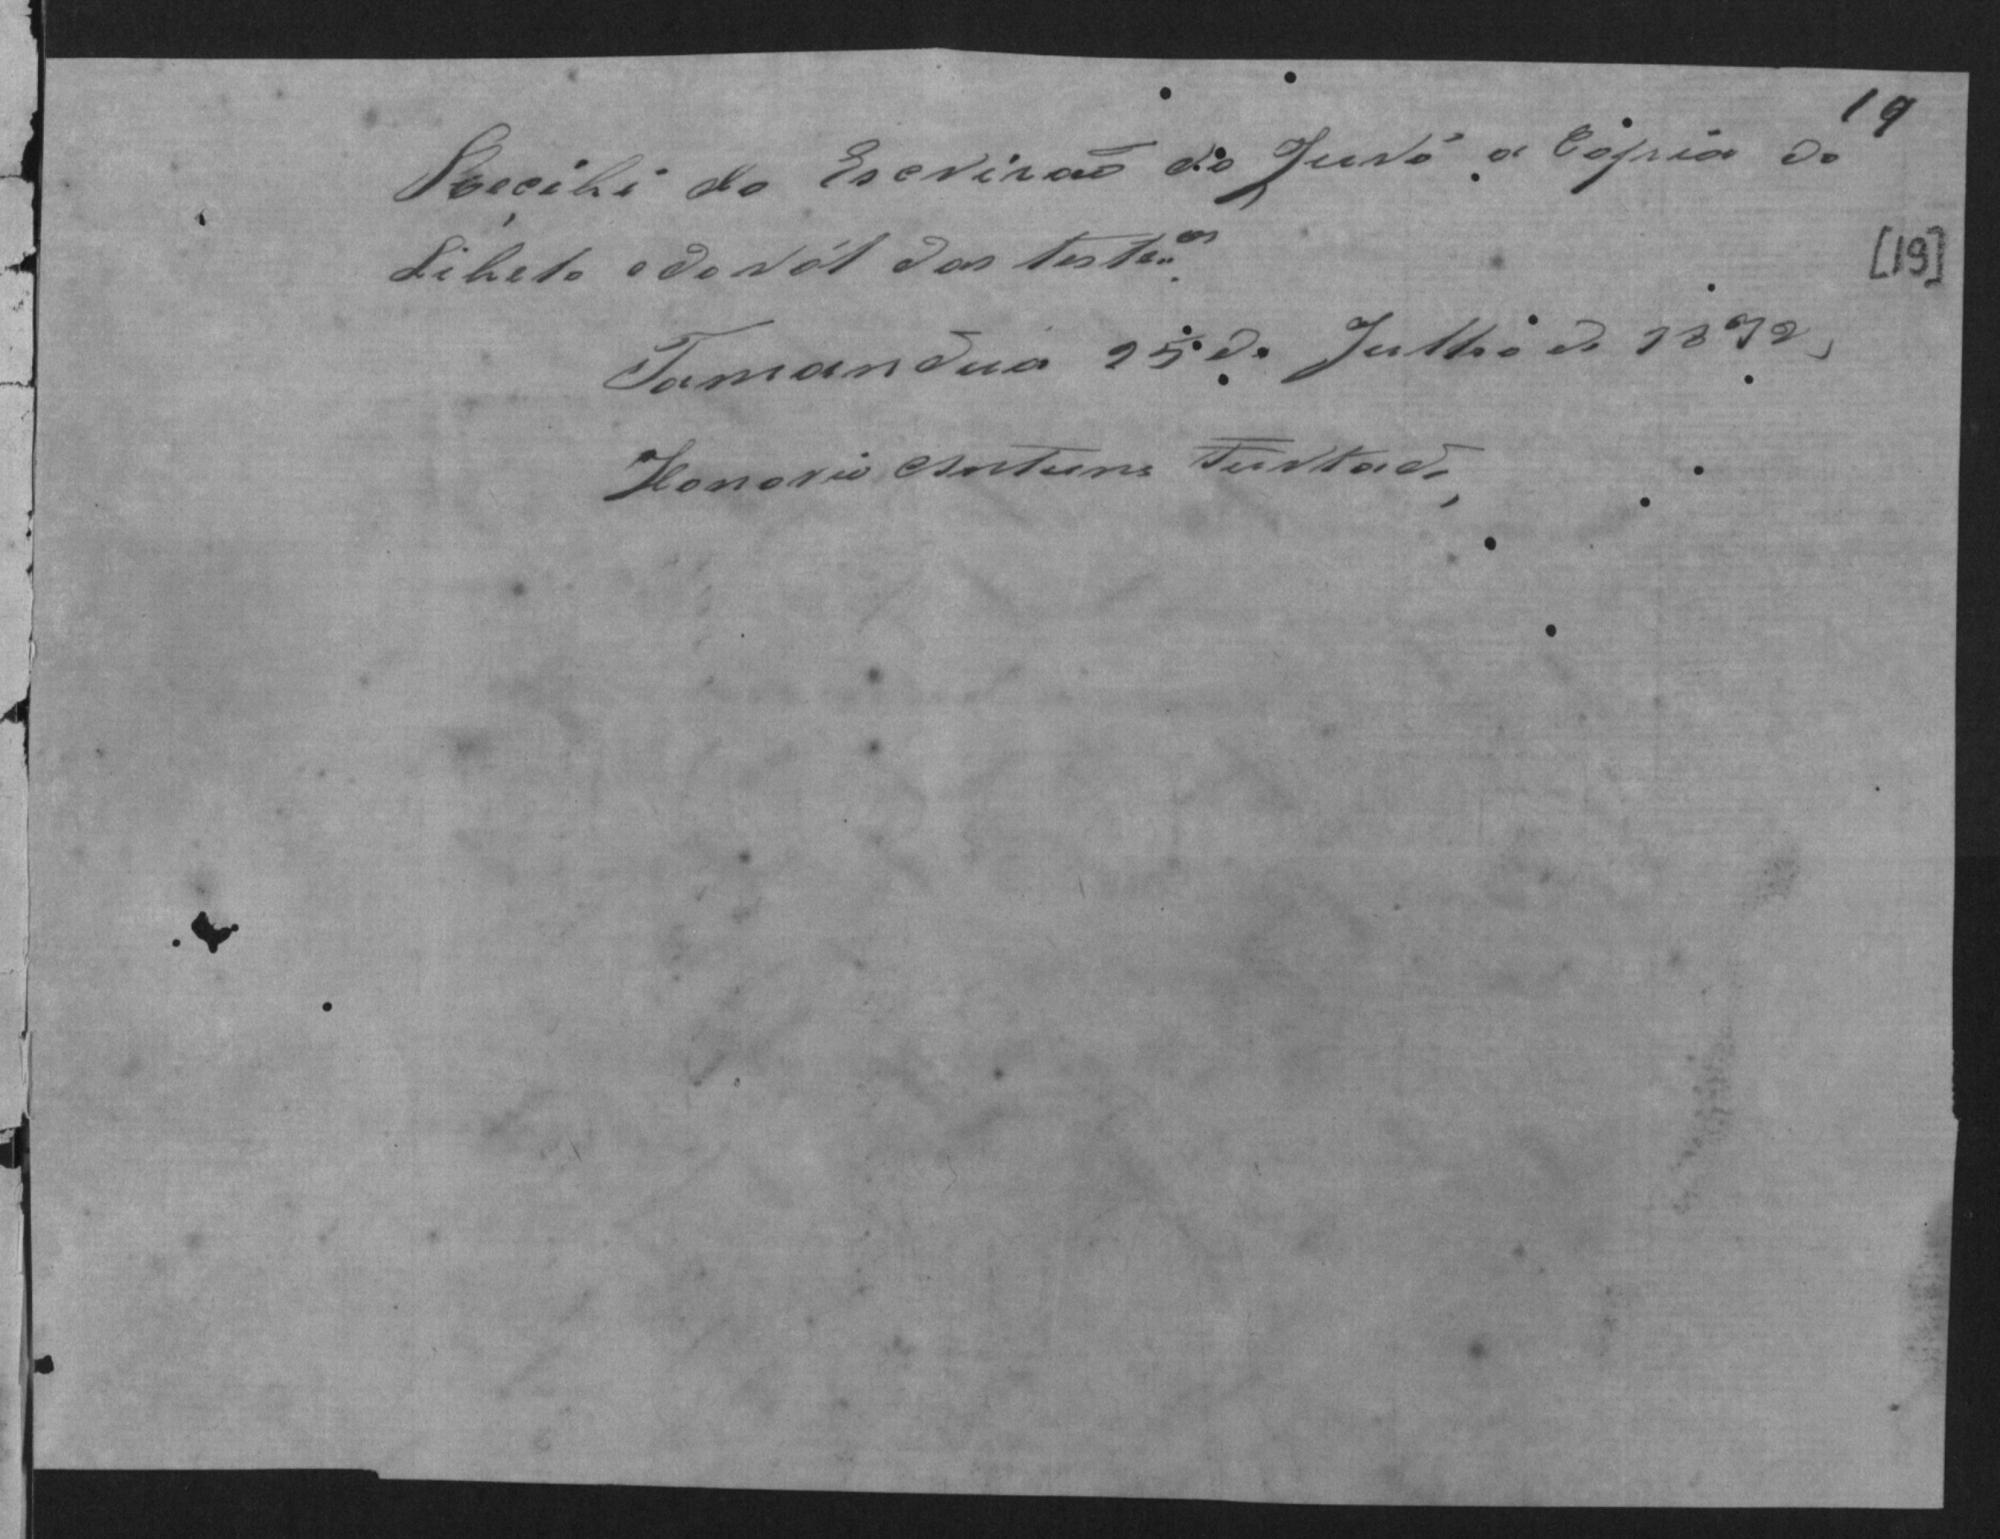 19
Recibi do Escrivaõ do Juró a Copia do
[19]
Libelo e do ról das test.as
Tamandua 25 de Julho de 1872,
Honorio Antunes Furtado,